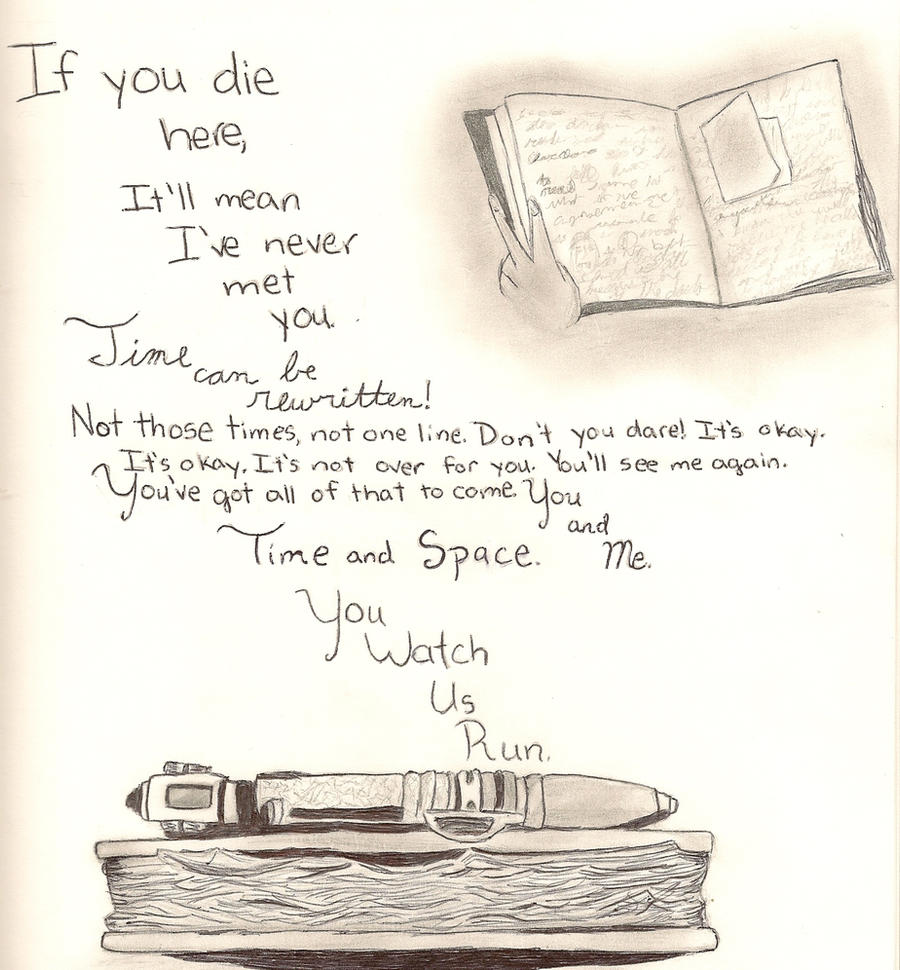 If you die
here,
It'll mean
I've never
met
you.
Time
can be
rewritten!
Not those times, not one line. Don't you dare! It's okay.
It's okay. It's not over for you. You'll see me again.
You've got all of that to come. You
and
Time and Space. Me.
You
Watch
Us
Run.